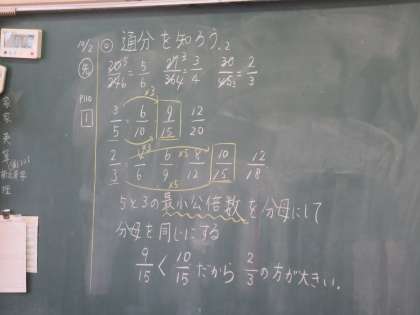 10/2 ◎ 通分を知ろう.2
先 20/24=5/6 27/36=3/4 20/30=2/3
P110
1 3/5=6/10 9/15 12/20
×3
2/3=4/6 6/9 8/12 10/15 12/18
×5
×5
5と3の最小公倍数を分母にして
分母を同じにする
9/15 < 10/15 だから 2/3 の方が大きい.
家
家
理